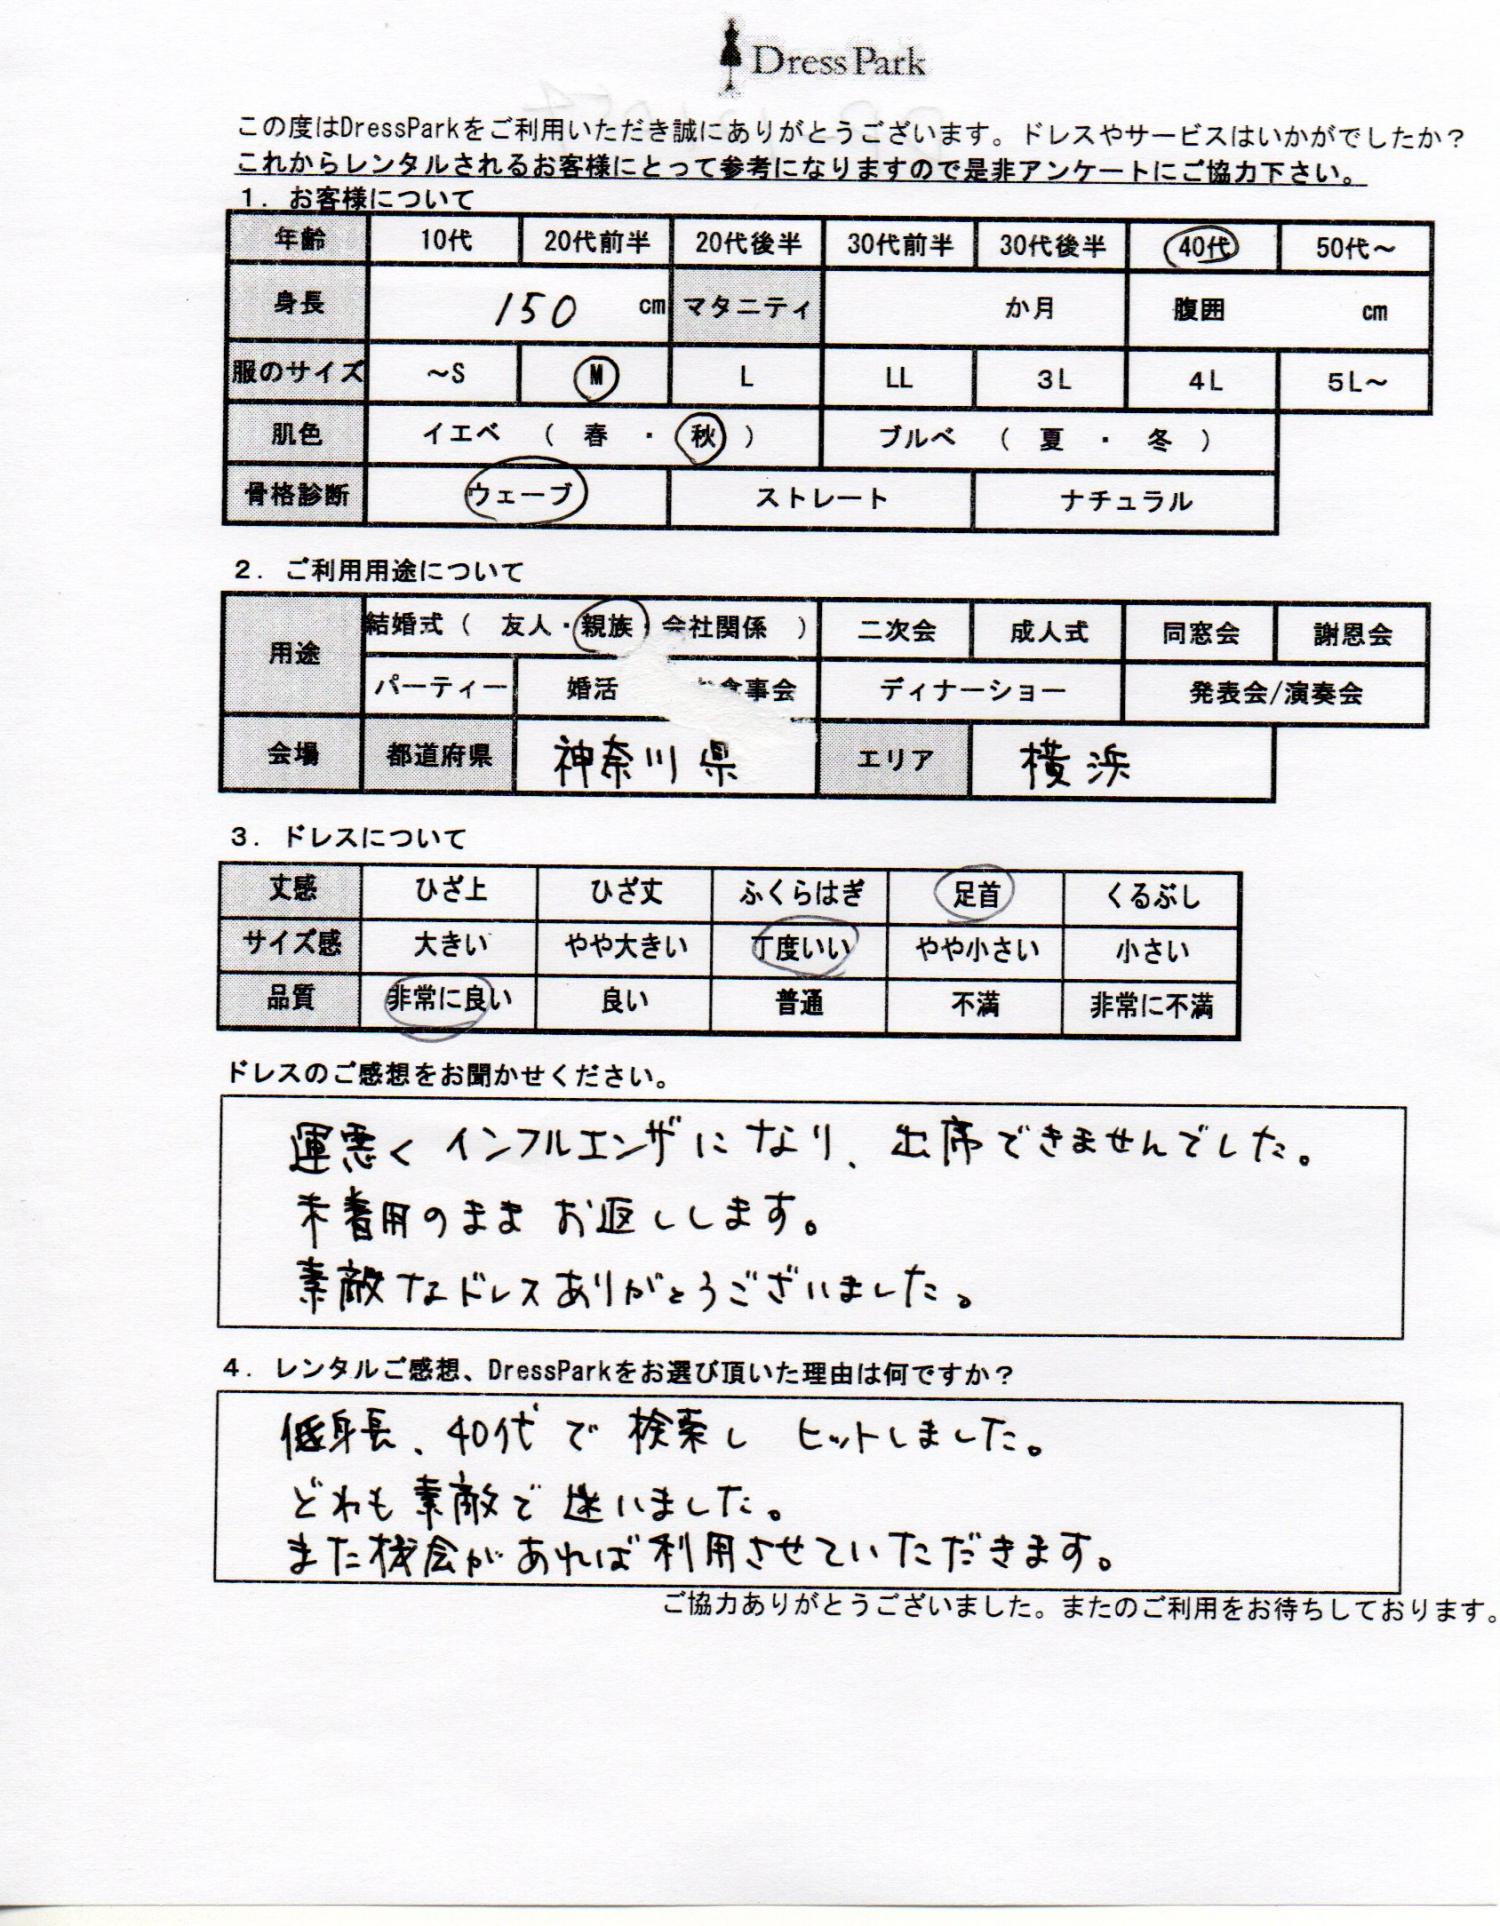 Dress Park
この度はDressParkをご利用いただき誠にありがとうございます。ドレスやサービスはいかがでしたか？
これからレンタルされるお客様にとって参考になりますので是非アンケートにご協力下さい。
１．お客様について
年齢 10代 20代前半 20代後半 30代前半 30代後半 40代 50代～
身長 150 cm マタニティ か月 腹囲 cm
服のサイズ ～S M L LL 3L 4L 5L～
肌色 イエベ （ 春 ・ 秋 ） ブルベ （ 夏 ・ 冬 ）
骨格診断 ウェーブ ストレート ナチュラル
２．ご利用用途について
用途 結婚式（ 友人・親族・会社関係 ） 二次会 成人式 同窓会 謝恩会
パーティー 婚活 食事会 ディナーショー 発表会/演奏会
会場 都道府県 神奈川県 エリア 横浜
３．ドレスについて
丈感 ひざ上 ひざ丈 ふくらはぎ 足首 くるぶし
サイズ感 大きい やや大きい 丁度いい やや小さい 小さい
品質 非常に良い 良い 普通 不満 非常に不満
ドレスのご感想をお聞かせください。
運悪くインフルエンザになり、出席できませんでした。
未着用のままお返しします。
素敵なドレスありがとうございました。
４．レンタルご感想、DressParkをお選び頂いた理由は何ですか？
低身長、40代で検索し ヒットしました。
どれも素敵で迷いました。
また機会があれば利用させていただきます。
ご協力ありがとうございました。またのご利用をお待ちしております。